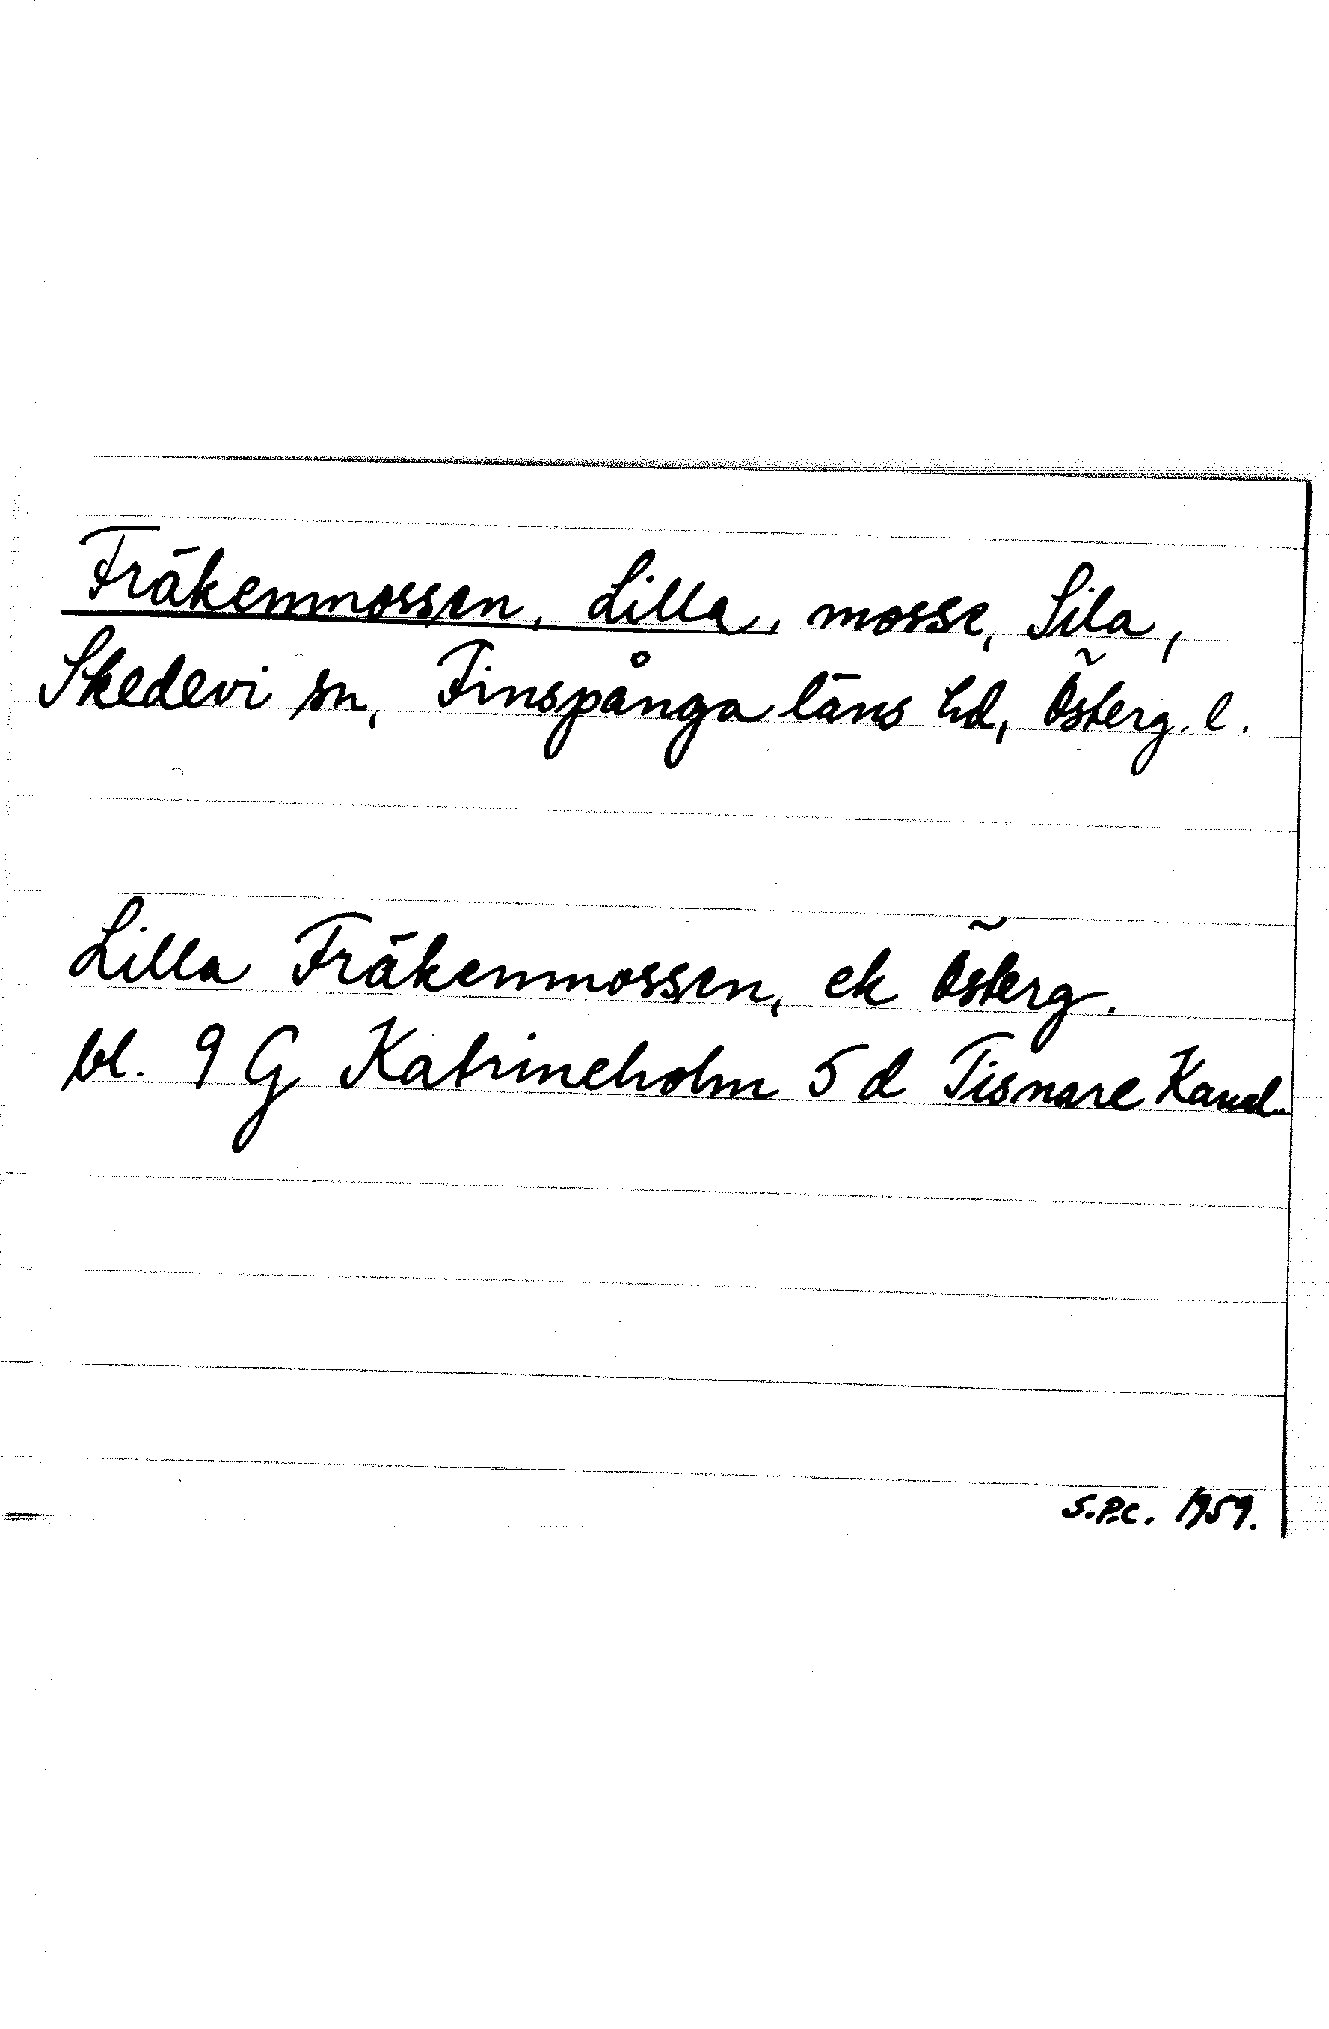 Fräkenmossen, Lilla, mosse, Sila,
Skedevi sn, Finspånga läns hd, Österg. l.
Lilla Fräkenmossen, ek Österg.
bl. 9 G Katrineholm 5 d Tisnare Kanal.
S.P.C. 1959.